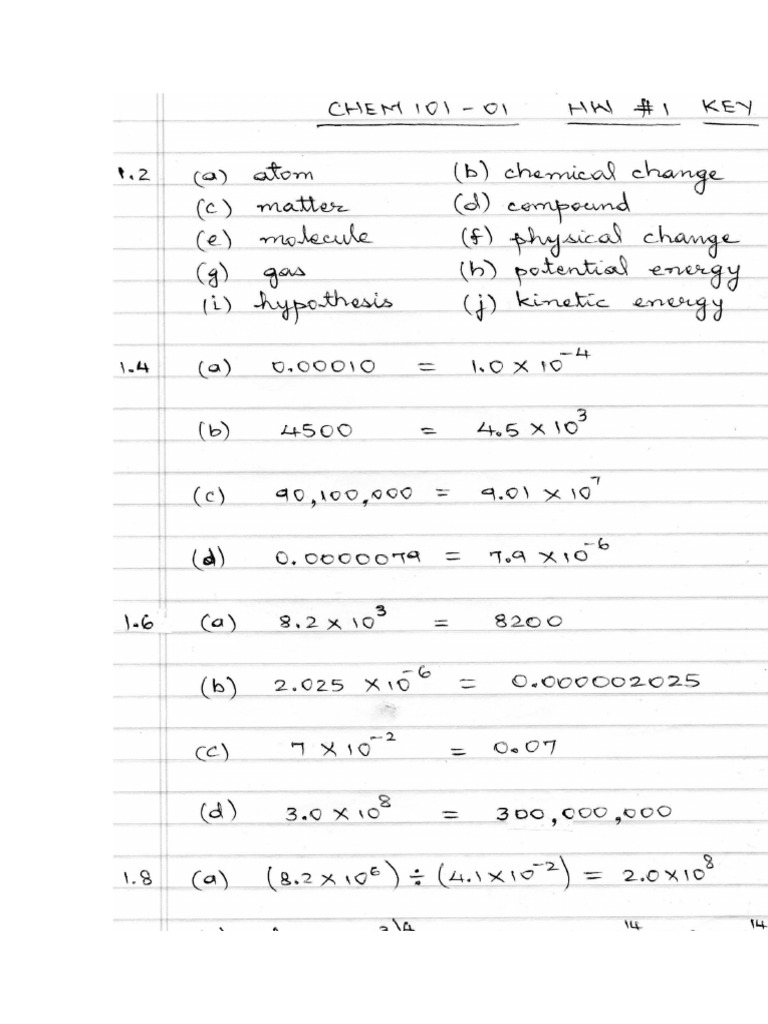 CHEM 101-01 HW #1 KEY
1.2 (a) atom (b) chemical change
(c) matter (d) compound
(e) molecule (f) physical change
(g) gas (h) potential energy
(i) hypothesis (j) kinetic energy
1.4 (a) 0.00010 = 1.0 × 10⁻⁴
(b) 4500 = 4.5 × 10³
(c) 90,100,000 = 9.01 × 10⁷
(d) 0.0000079 = 7.9 × 10⁻⁶
1.6 (a) 8.2 × 10³ = 8200
(b) 2.025 × 10⁻⁶ = 0.000002025
(c) 7 × 10⁻² = 0.07
(d) 3.0 × 10⁸ = 300,000,000
1.8 (a) (8.2 × 10⁶) ÷ (4.1 × 10⁻²) = 2.0 × 10⁸
14 14